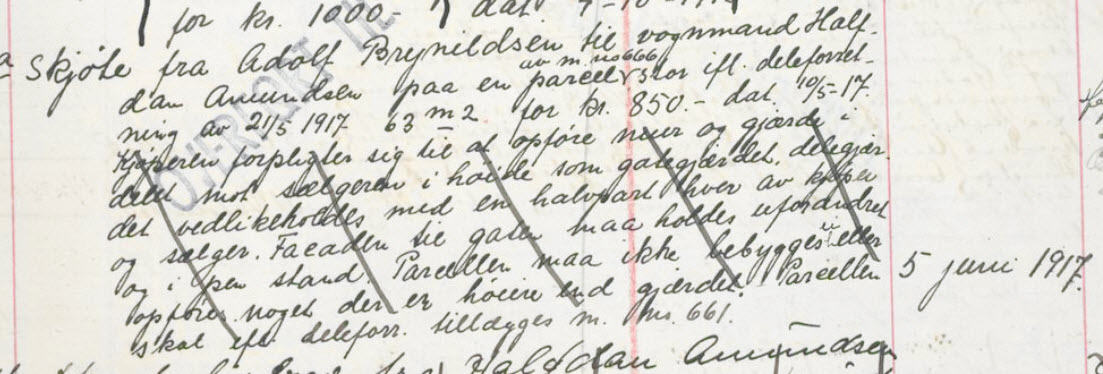 for kr. 1000-
Skjøte fra Adolf Brynildsen til vognmand Half-
av m. no 666
dan Amundsen paa en parcel stor ifl. deleforret-
ning av 21/5 1917 63 m2 for kr. 850.- dat. 10/5-17.
Kjøperen forpligter sig til at opføre mur og gjærde i
delet mot sælgeren i høide som gategjærdet. delegjær-
det vedlikeholdes med en halvpart hver av kjøper
og sælger. Facaden til gaten maa holdes uforandret
og i pen stand. Parcellen maa ikke bebygges eller
opføres noget der er høiere end gjærdet. Parcellen
5 juni 1917.
skal ifl. deleforr. tillægges m. no. 661.
Halfdan Amundsen
OVERFØRT